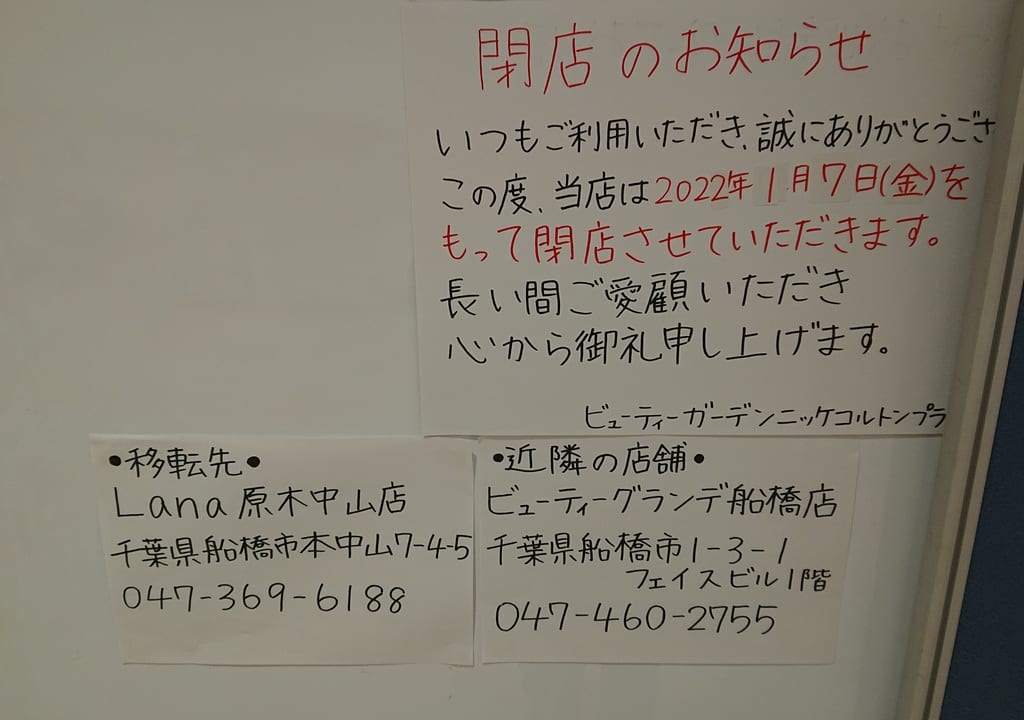 閉店のお知らせ
いつもご利用いただき、誠にありがとうござ
この度、当店は2022年1月7日(金)を
もって閉店させていただきます。
長い間ご愛顧いただき
心から御礼申し上げます。
ビューティーガーデンニッケコルトンプラ
•移転先•
Lana原木中山店
千葉県船橋市本中山7-4-5
047-369-6188
•近隣の店舗•
ビューティーグランデ船橋店
千葉県船橋市1-3-1
フェイスビル1階
047-460-2755